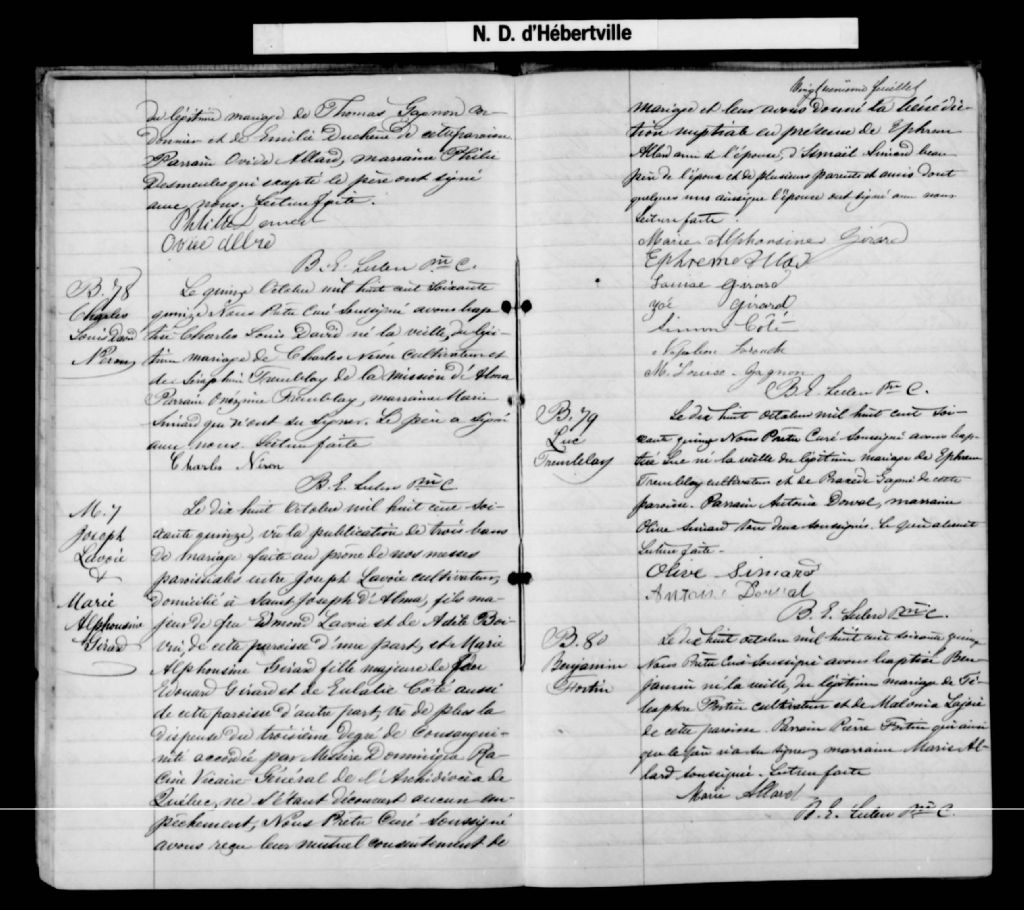 N. D. d'Hébertville
du légitime mariage de Thomas Gagnon cor-
donnier et de Emilie Duchêne de cette paroisse
Parrain Ovide Allard, marraine Philie
Desmeules qui excepté le père ont signé
avec nous. Lecture faite.
B. E. Leclerc Ptre C.
B. 78
Charles
Louis David
Néron
Le quinze Octobre mil huit cent soixante
quinze Nous Prêtre Curé soussigné avons bap-
tisé Charles Louis David né la veille, du légi-
time mariage de Charles Néron cultivateur et
de Séraphine Tremblay de la mission d'Alma
Parrain Onézime Tremblay, marraine Marie
Simard qui n'ont su signer. Le père a signé
avec nous. Lecture faite
Charles Néron
B. E. Leclerc Ptre C
M. 7
Joseph
Lavoie
&
Marie
Alphonsine
Girard
Le dix huit Octobre mil huit cent soi-
xante quinze, vu la publication de trois bans
de mariage faite au prône de nos messes
paroissiales entre Joseph Lavoie cultivateur,
domicilié à Saint Joseph d'Alma, fils ma-
jeur de feu Edmond Lavoie et de Adèle Boi-
vin, de cette paroisse d'une part, et Marie
Alphonsine Girard fille majeure de feu
Edouard Girard et de Eulalie Coté aussi
de cette paroisse d'autre part, vu de plus la
dispense du troisième degré de consangui-
nité accordée par Messire Dominique Ra-
cine Vicaire Général de l'Archidiocèse de
Québec, ne s'étant découvert aucun em-
pêchement, Nous Prêtre Curé soussigné
avons reçu leur mutuel consentement de
Vingt troisième feuillet
mariage et leur avons donné la bénédic-
tion nuptiale en présence de Ephrem
Allard ami de l'épouse, d'Ismaël Simard beau
père de l'époux et de plusieurs parents et amis dont
quelques uns ainsi que l'épouse ont signé avec nous
Lecture faite.
Marie Alphonsine Girard
Ephrem Allard
Louise Girard
Zoé Girard
Simon Côté
Napoléon
M. Louise Gagnon
B. E. Leclerc Ptre C.
B. 79
Luc
Tremblay
Le dix huit Octobre mil huit cent soi-
xante quinze Nous Prêtre Curé soussigné avons bap-
tisé Luc né la veille du légitime mariage de Ephrem
Tremblay cultivateur et de Praxède Gagné de cette
paroisse. Parrain Antoine Dorval, marraine
Olive Simard tous deux soussignés. Le père absent
Lecture faite.
Olive Simard
Antoine Dorval
B. E. Leclerc Ptre C.
B. 80
Benjamin
Fortin
Le dix huit octobre mil huit cent soixante quinze
Nous Prêtre Curé soussigné avons baptisé Ben-
jamin né la veille, du légitime mariage de Té-
lesphore Fortin cultivateur et de Malonia Lajoie
de cette paroisse. Parrain Pierre Fortin qui ainsi
que le père n'a su signer, marraine Marie Al-
lard soussignée. Lecture faite
Marie Allard
B. E. Leclerc Ptre C.